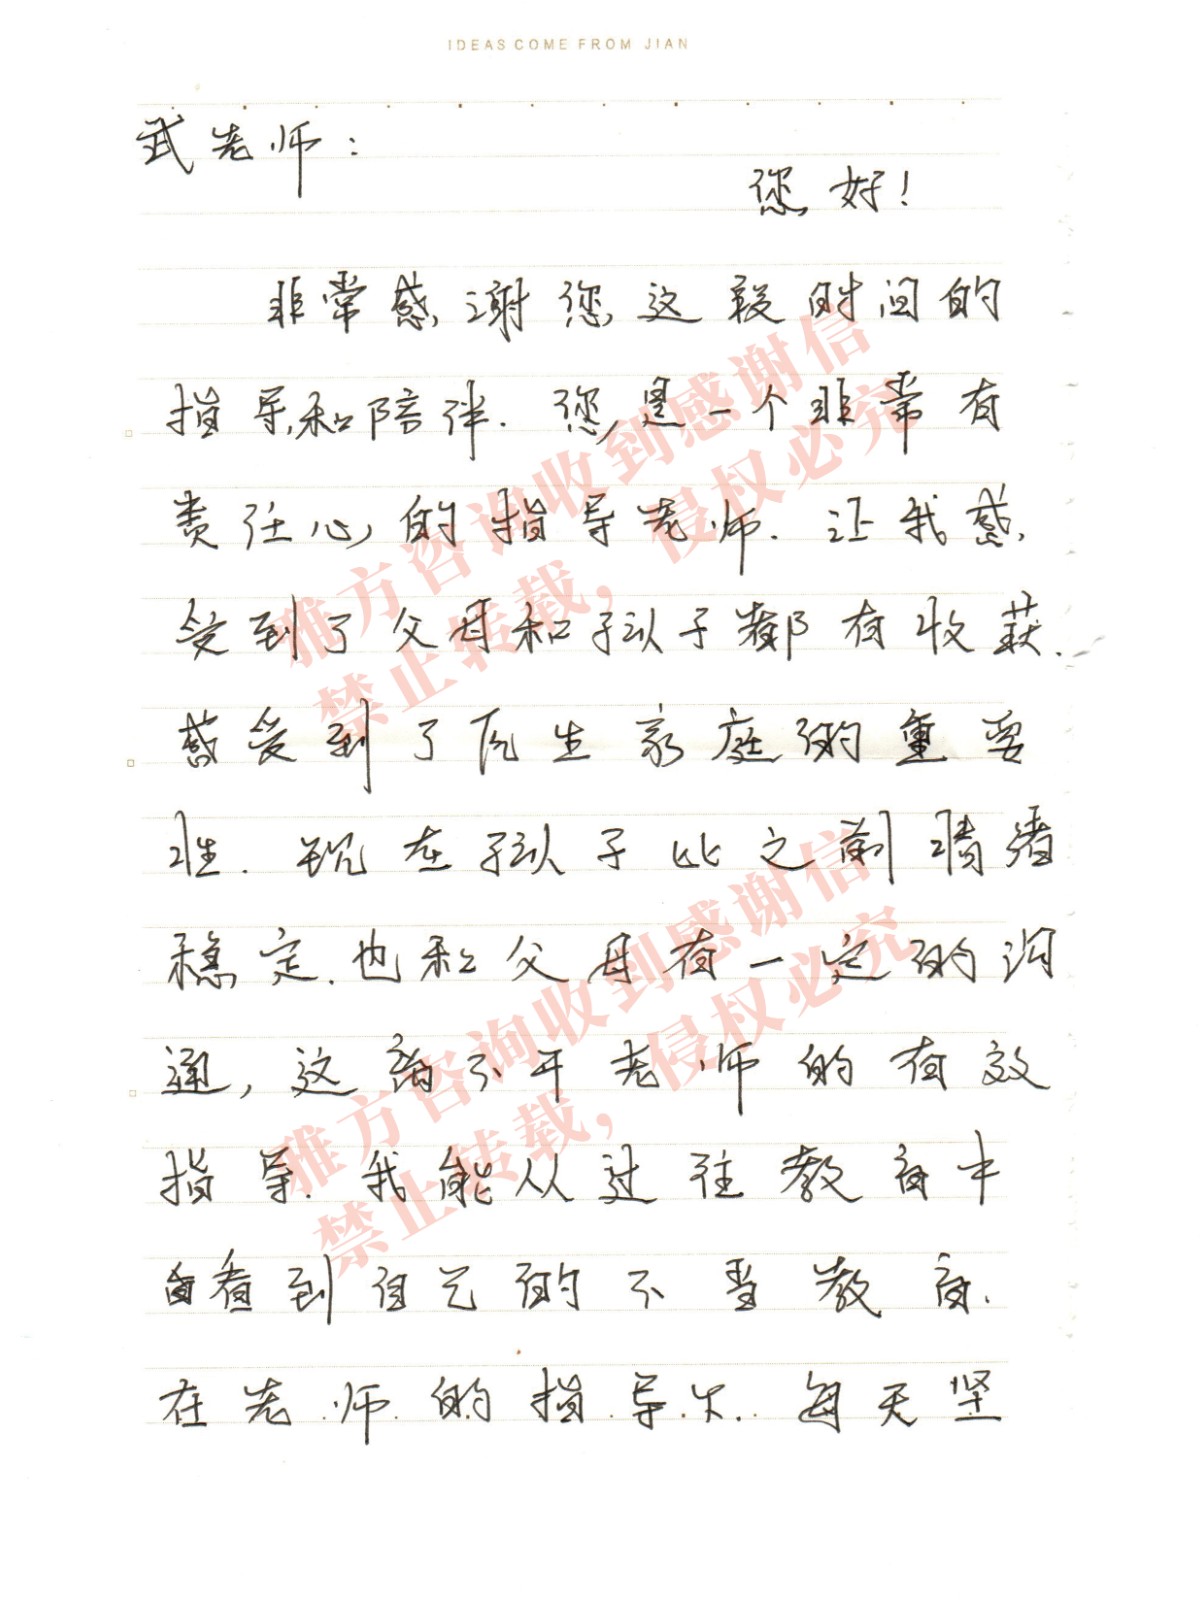 IDEAS COME FROM JIAN
武老师：
您好！
非常感谢您这段时间的
指导和陪伴．您是一个非常有
责任心的指导老师．让我感
受到了父母和孩子都有收获．
感受到了原生家庭的重要
性．现在孩子比之前情绪
稳定．也和父母有一定的沟
通，这离不开老师的有效
指导．我能从过往教育中
自看到自己的不当教育．
在老师的指导下．每天坚
雅方咨询收到感谢信
禁止转载，侵权必究
雅方咨询收到感谢信
禁止转载，侵权必究